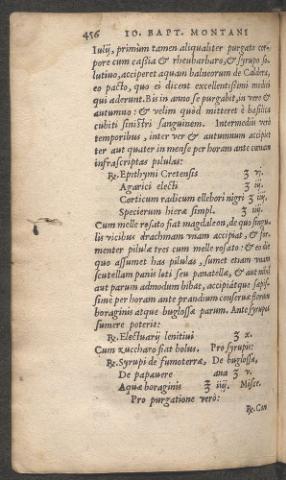 456 IO. BAPT. MONTANI
Iulij, primùm tamen aliqualiter purgato cor-
pore cum cassia & rheubarbaro, & syrupo so-
lutiuo, acciperet aquam balneorum de Caldera,
eo pacto, quo ei dicent excellentissimi medici
qui aderunt. Bis in anno se purgabit, in vere &
autumno: & velim quòd mitteret è basilica
cubiti sinistri sanguinem. Intermedijs verò
temporibus, inter ver & autumnum accipiet
ter aut quater in mense per horam ante cœnam
infrascriptas pilulas:
℞. Epithymi Cretensis ʒ vj.
Agarici electi ʒ iij.
Corticum radicum ellebori nigri ʒ iij.
Specierum hieræ simpl. ʒ iiij.
Cum melle rosato fiat magdaleon, de quo singu-
lis vicibus drachmam vnam accipiat, & for-
mentur pilulæ tres cum melle rosato: & eo die
quo assumet has pilulas, sumet etiam vnam
scutellam panis loti seu panatellæ, & aut nihil
aut parum admodum bibat, accipiatque sæpis-
simè per horam ante prandium conseruæ florum
boraginis atque buglossæ parum. Ante syrupos
sumere poterit:
℞. Electuarij lenitiui ʒ x.
Cum zuccharo fiat bolus. Pro syrupis:
℞. Syrupi de fumoterræ, De buglossa,
De papauere ana ʒ v.
Aquæ boraginis ʒ iiij. Misce.
Pro purgatione verò:
℞. Can